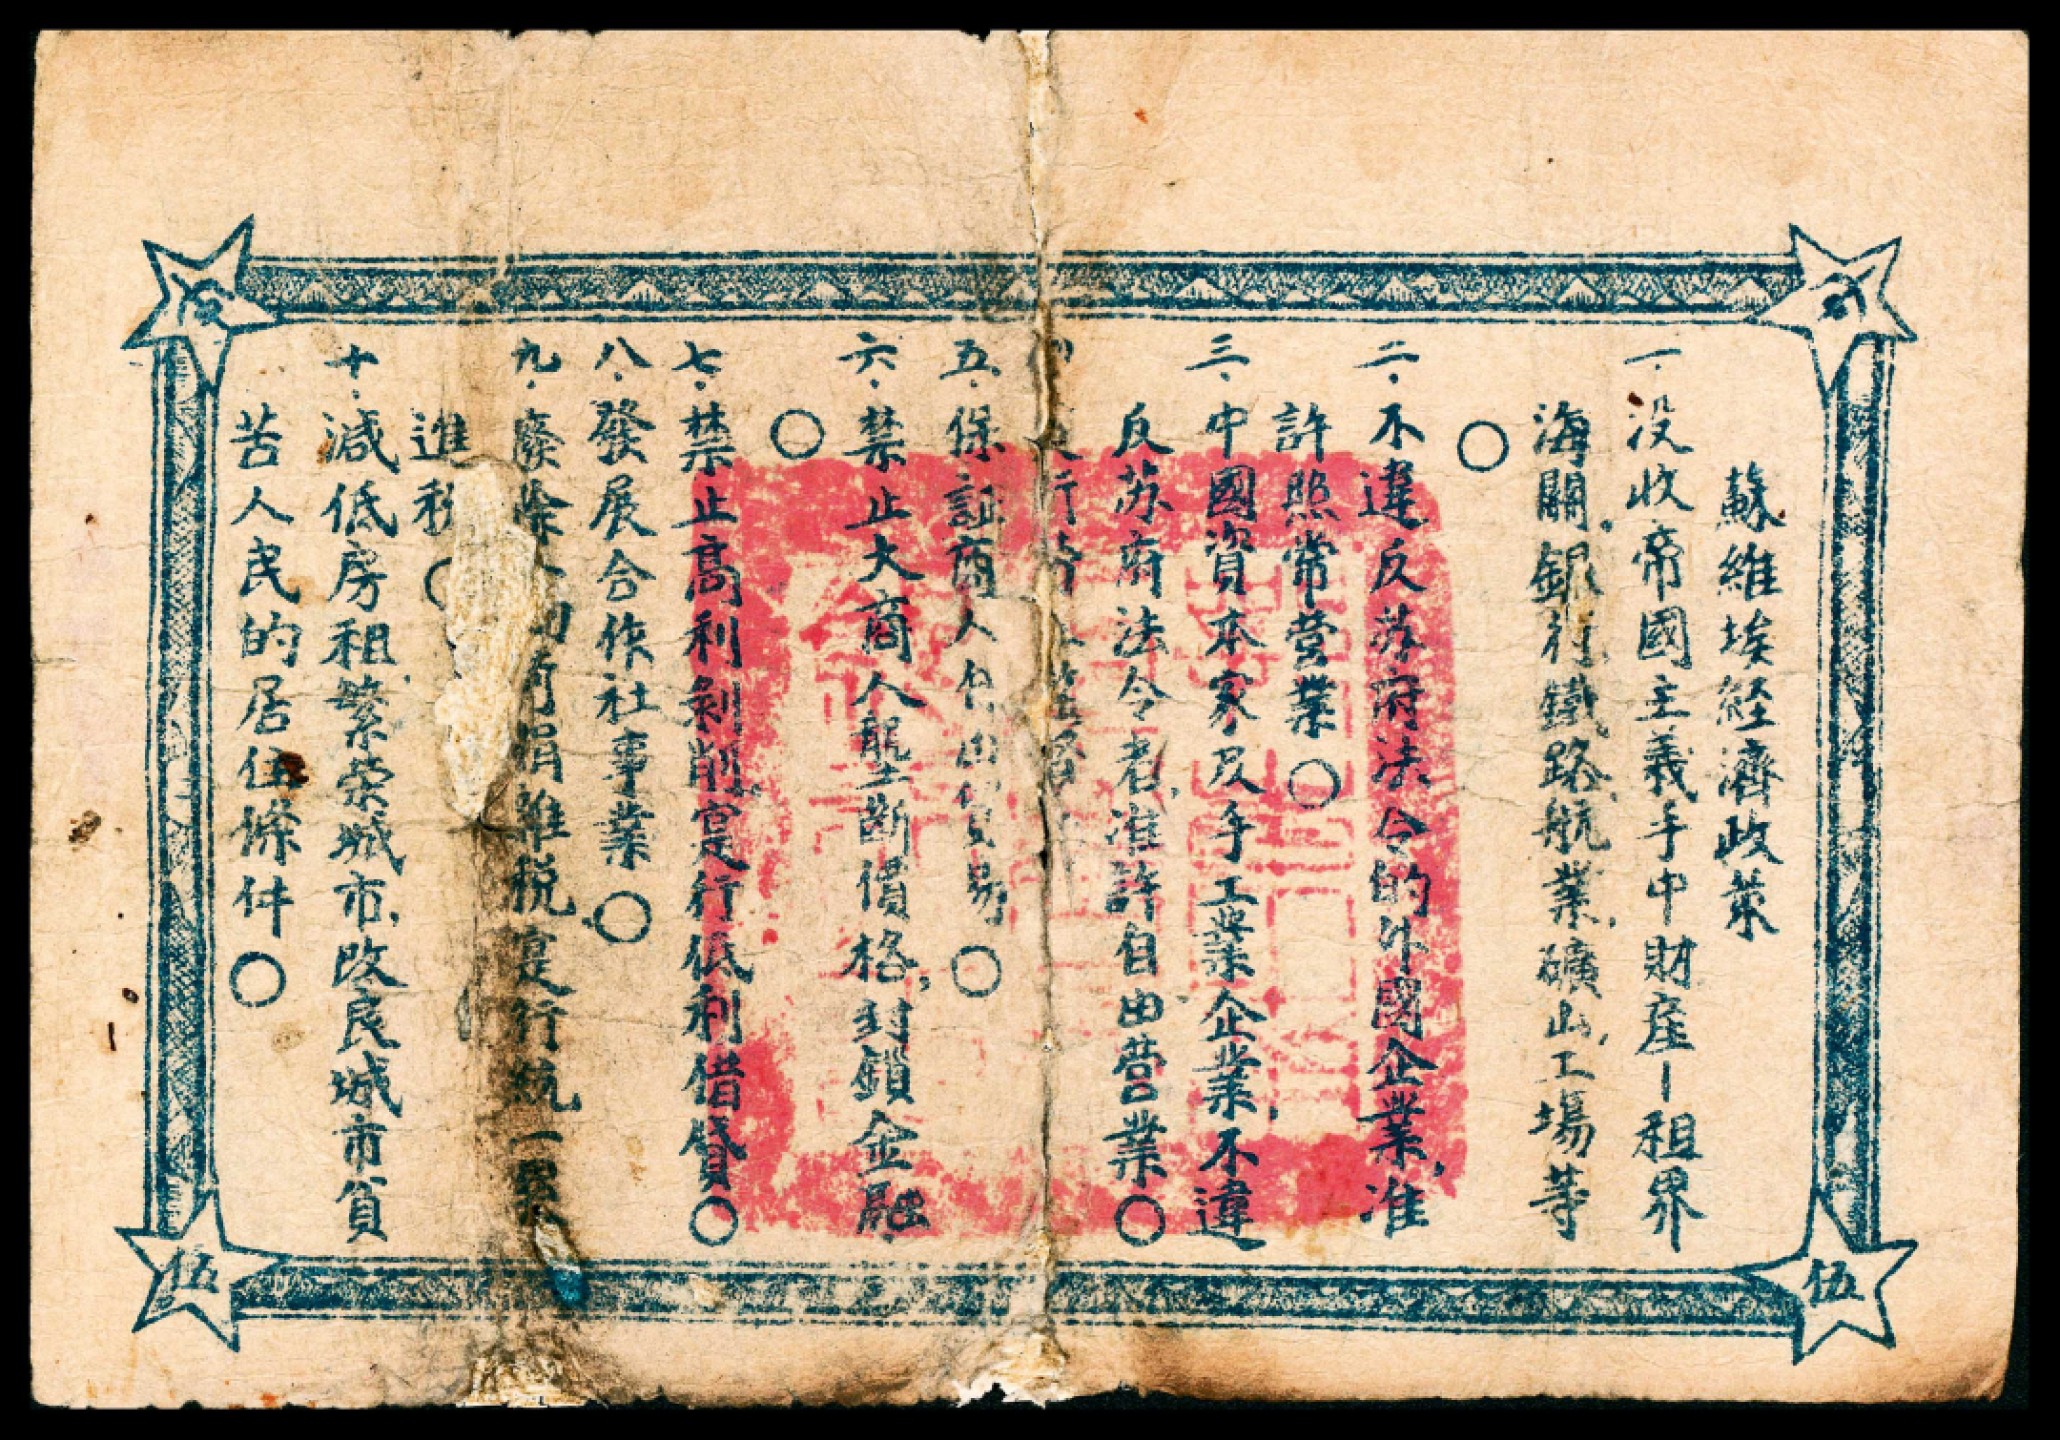 蘇維埃経濟政策
一.没收帝國主義手中財産－租界
海關.銀行.鐵路.航業.礦山.工場等
○
二.不違反苏府法令的外國企業,准
許照常營業○
三.中國資本家及手工業企業,不違
反苏府法令者,准許自由营業○
行
五.保証商人 出 貿易○
六.禁止大商人壟断價格,封鎖金融
○
七.禁止高利剥削,寔行低利借贷○
八.發展合作社事業○
九.廢除 切苛捐雜税.寔行統一累
進税○
十.減低房租.繁荣城市,改良城市貧
苦人民的居住條件○
伍
伍